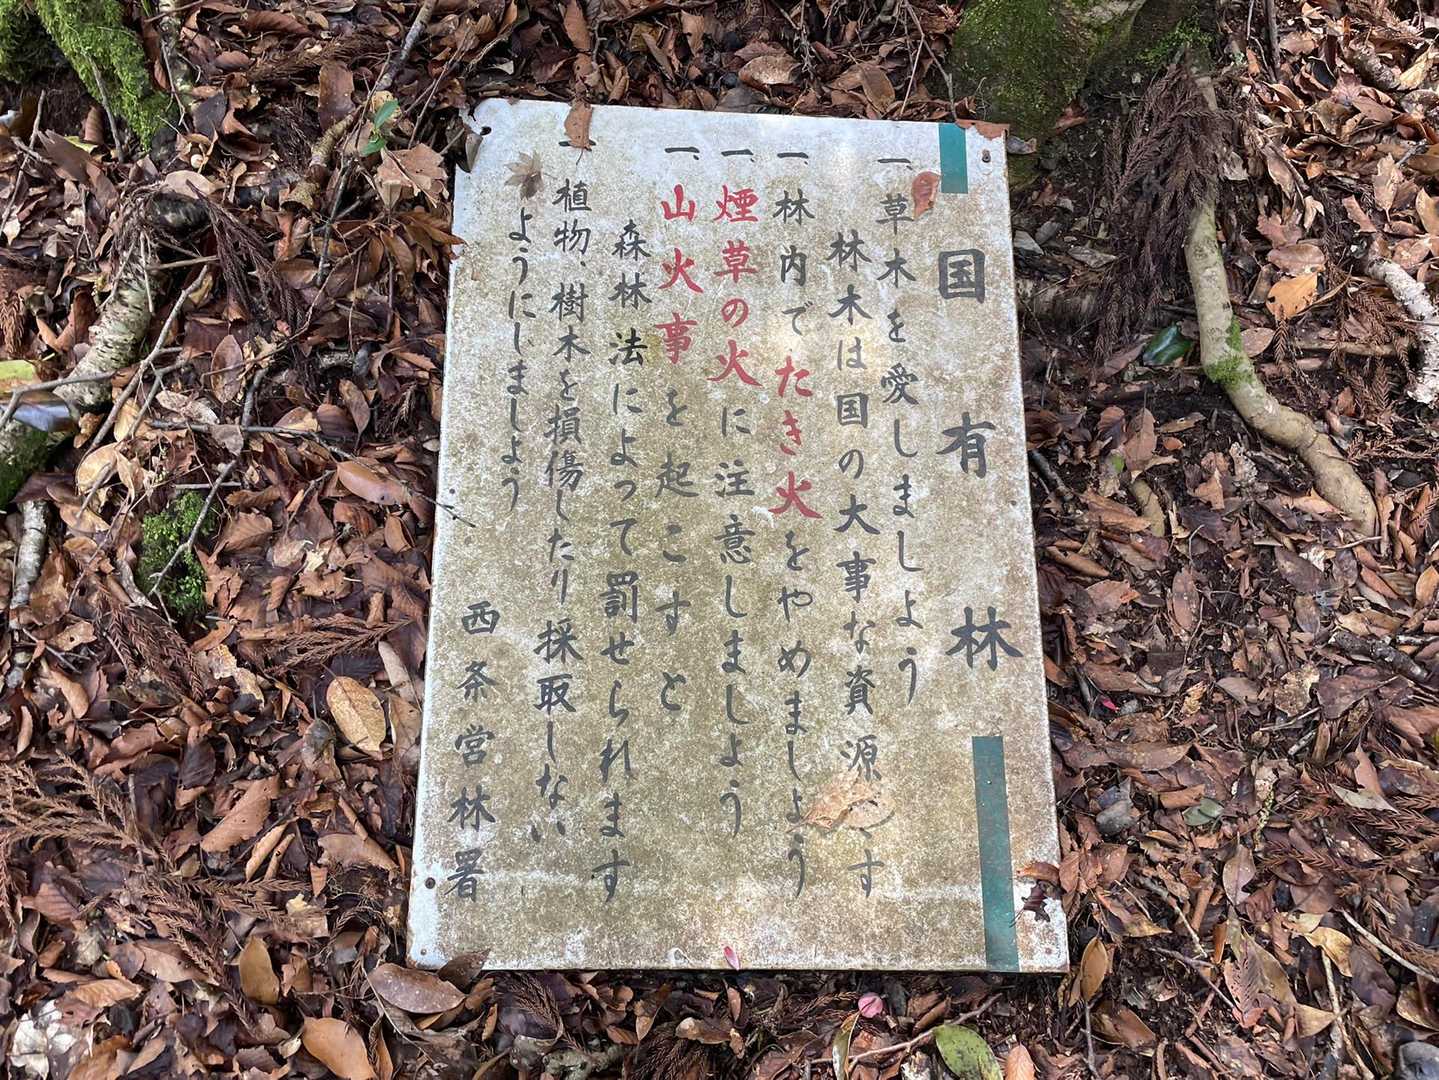 国有林
一、草木を愛しましょう
林木は国の大事な資源です
一、林内でたき火をやめましょう
一、煙草の火に注意しましょう
一、山火事を起こすと
森林法によって罰せられます
一、植物、樹木を損傷したり採取しない
ようにしましょう
西条営林署